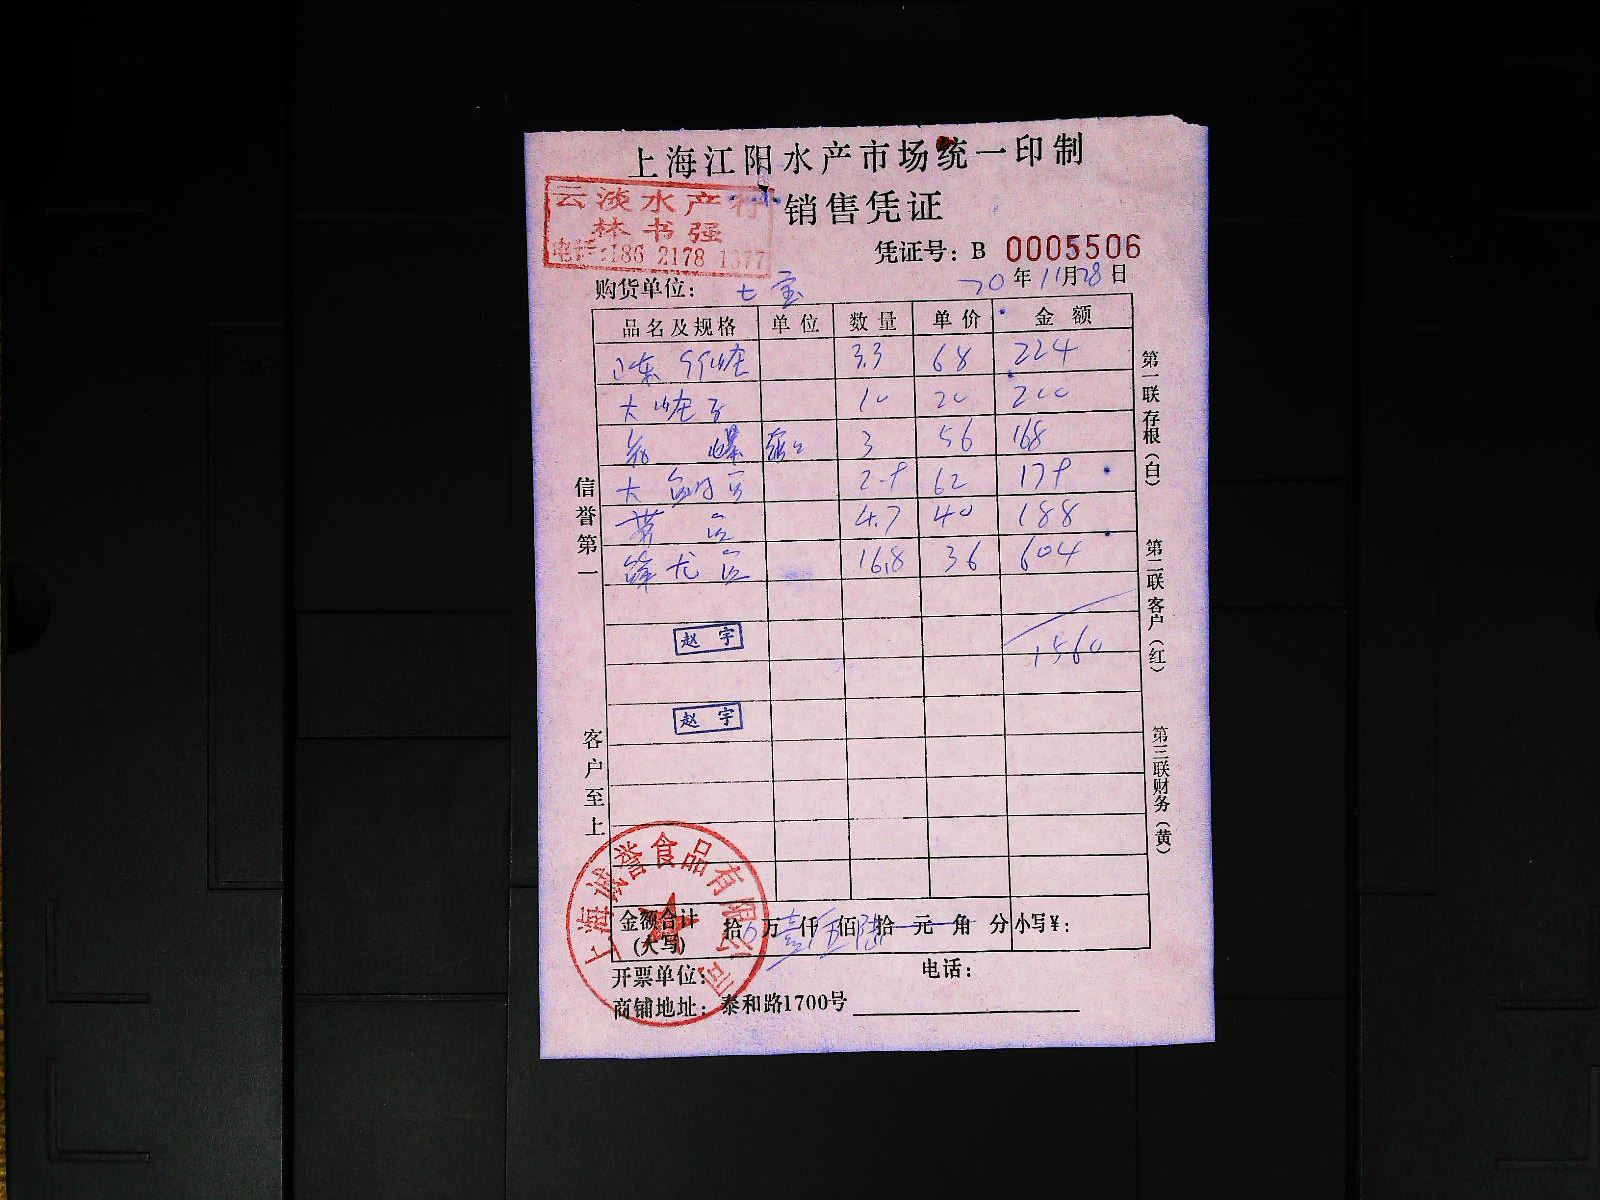 上海江阳水产市场统一印制
销售凭证
云淡水产行
林书强
电话:186 2178 1377
凭证号: B 0005506
购货单位: 七宝
20年11月28日
品名及规格 单位 数量 单价 金额
3.3 68 224
大 10 20 200
3 56 168
大 62
带 4.7 40 188
龙 16.8 36 604
1560
赵宇
赵宇
信誉第一
客户至上
第一联存根(白)
第二联客户(红)
第三联财务(黄)
金额合计(大写) 拾 万壹仟伍佰陆拾元角分 小写¥:
开票单位: 电话:
商铺地址: 泰和路1700号
上海诚誉食品有限公司